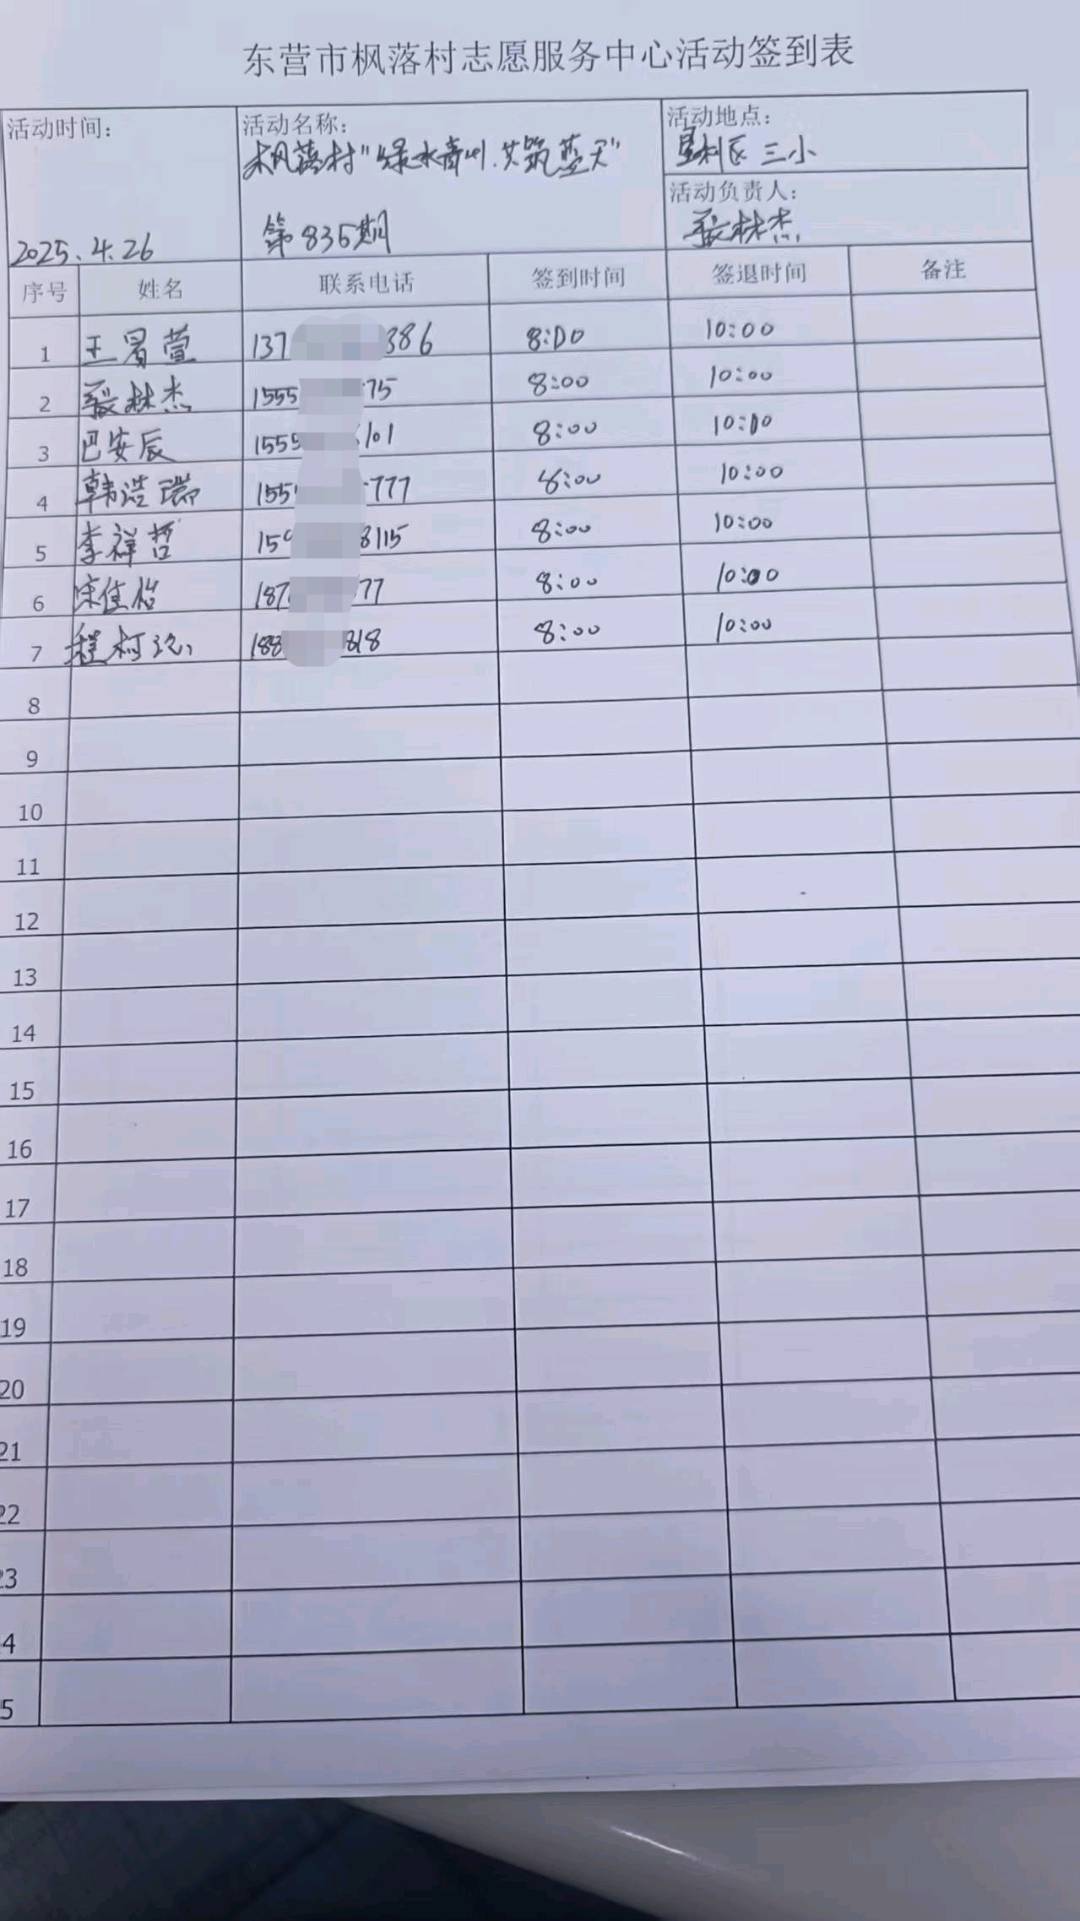 东营市枫落村志愿服务中心活动签到表
活动时间: 活动名称: 活动地点:
枫落村"绿水青山.共筑蓝天" 垦利区三小
活动负责人:
2025.4.26 第835期 林杰
序号 姓名 联系电话 签到时间 签退时间 备注
1 王暑萱 137 386 8:00 10:00
2 林杰 1555 75 8:00 10:00
3 巴安辰 1555 101 8:00 10:00
4 韩浩瑞 155 777 8:00 10:00
5 李祥哲 159 8115 8:00 10:00
6 宋佳怡 187 77 8:00 10:00
7 程柯 188 818 8:00 10:00
8
9
10
11
12
13
14
15
16
17
18
19
20
21
22
23
4
5